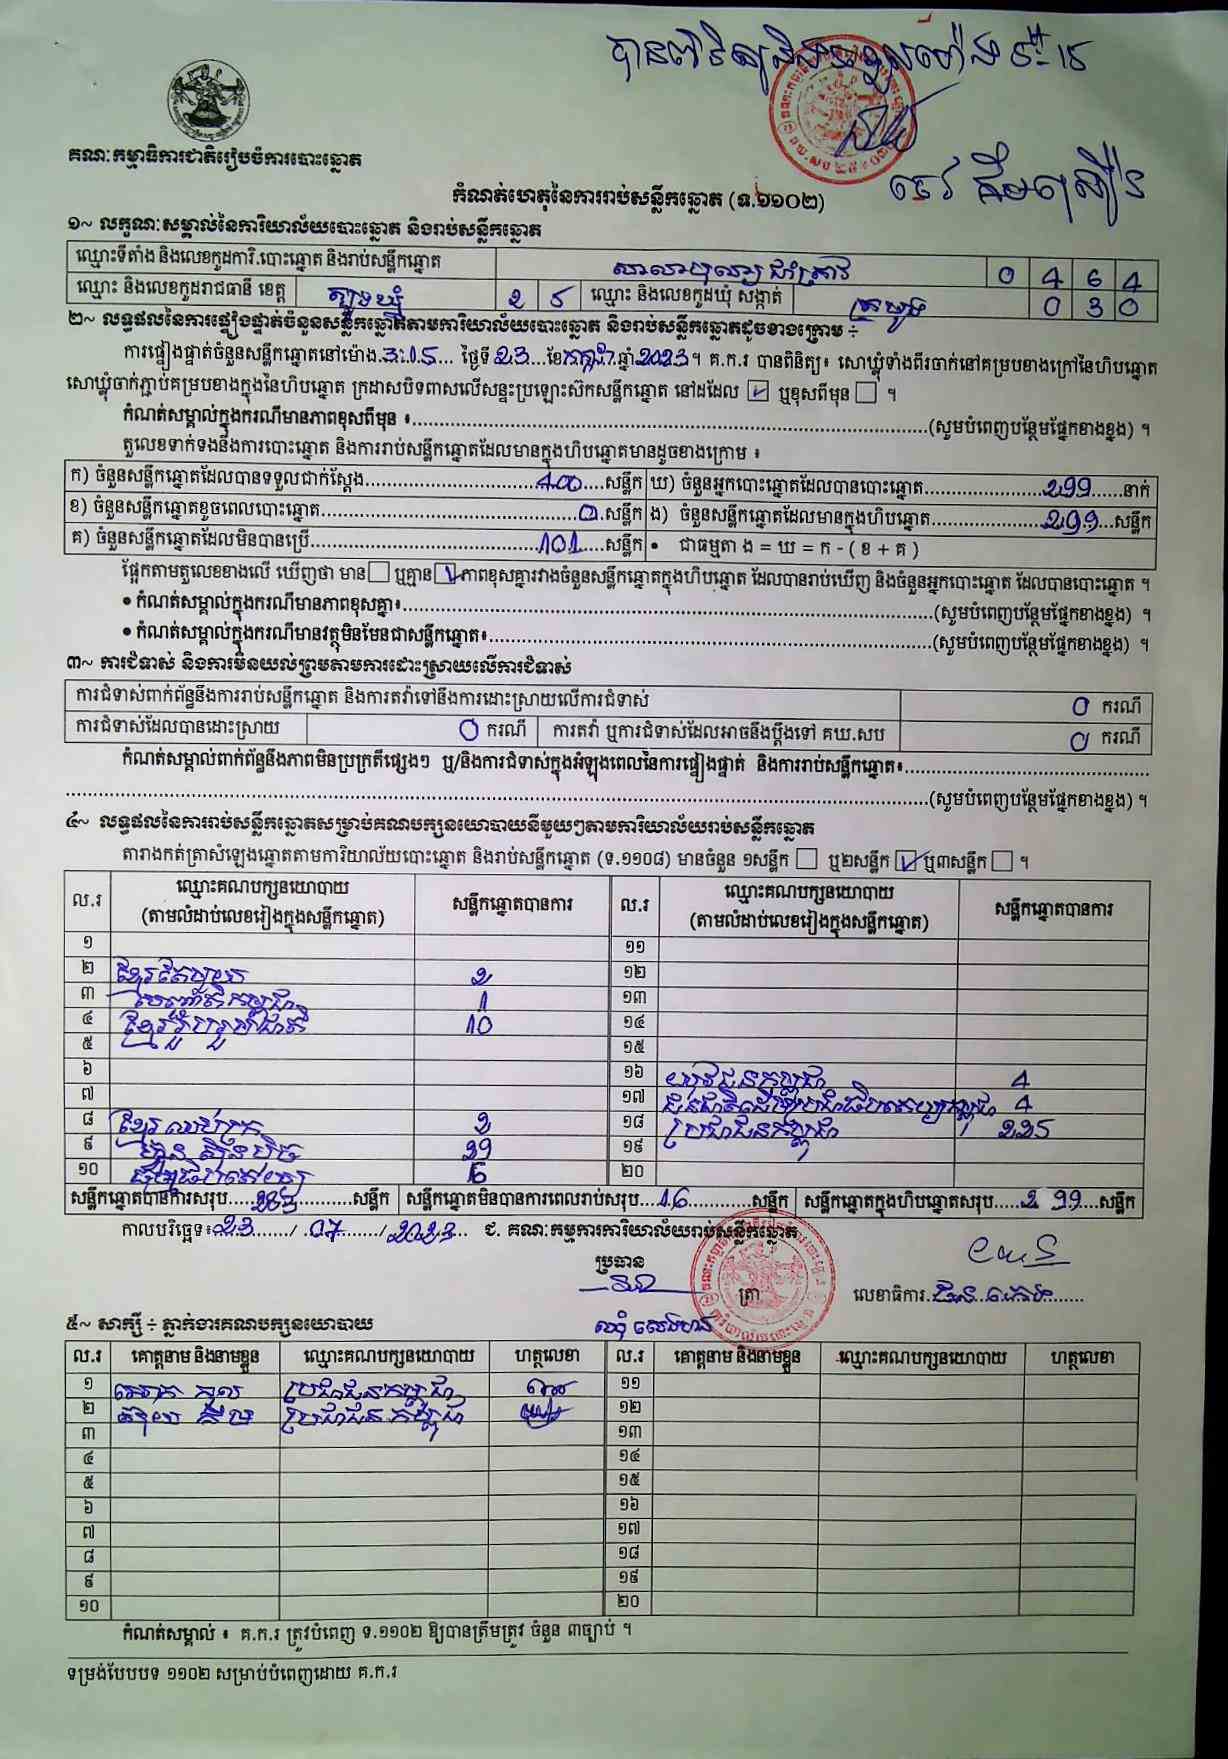 គណៈកម្មាធិការជាតិរៀបចំការបោះឆ្នោត
កំណត់ហេតុនៃការរាប់សន្លឹកឆ្នោត (ទ.១១០២)
១~ លក្ខណៈសម្គាល់នៃការិយាល័យបោះឆ្នោត និងរាប់សន្លឹកឆ្នោត
ឈ្មោះទីតាំង និងលេខកូដការិ.បោះឆ្នោត និងរាប់សន្លឹកឆ្នោត 0 4 6 4
ឈ្មោះ និងលេខកូដរាជធានី ខេត្ត ត្បូងឃ្មុំ 2 5 ឈ្មោះ និងលេខកូដឃុំ សង្កាត់ 0 3 0
២~ លទ្ធផលនៃការផ្ទៀងផ្ទាត់ចំនួនសន្លឹកឆ្នោតតាមការិយាល័យបោះឆ្នោត និងរាប់សន្លឹកឆ្នោតដូចខាងក្រោម ÷
ការផ្ទៀងផ្ទាត់ចំនួនសន្លឹកឆ្នោតនៅម៉ោង 3:15 ថ្ងៃទី 23 ខែ កក្កដា ឆ្នាំ 2023 ។ គ.ក.រ បានពិនិត្យ៖ សោឃ្លុំទាំងពីរចាក់នៅគម្របខាងក្រៅនៃហិបឆ្នោត
សោឃ្លុំចាក់ភ្ជាប់គម្របខាងក្នុងនៃហិបឆ្នោត ក្រដាសបិទពាសលើសន្ទះប្រឡោះស៊កសន្លឹកឆ្នោត នៅដដែល ☑ ឬខុសពីមុន ☐ ។
កំណត់សម្គាល់ក្នុងករណីមានភាពខុសពីមុន ៖ (សូមបំពេញបន្ថែមផ្នែកខាងខ្នង) ។
តួលេខទាក់ទងនឹងការបោះឆ្នោត និងការរាប់សន្លឹកឆ្នោតដែលមានក្នុងហិបឆ្នោតមានដូចខាងក្រោម ៖
ក) ចំនួនសន្លឹកឆ្នោតដែលបានទទួលជាក់ស្តែង 400 សន្លឹក ឃ) ចំនួនអ្នកបោះឆ្នោតដែលបានបោះឆ្នោត 299 នាក់
ខ) ចំនួនសន្លឹកឆ្នោតខូចពេលបោះឆ្នោត 0 សន្លឹក ង) ចំនួនសន្លឹកឆ្នោតដែលមានក្នុងហិបឆ្នោត 299 សន្លឹក
គ) ចំនួនសន្លឹកឆ្នោតដែលមិនបានប្រើ 101 សន្លឹក • ជាធម្មតា ង = ឃ = ក - ( ខ + គ )
ផ្អែកតាមតួលេខខាងលើ ឃើញថា មាន ☐ ឬគ្មាន ☑ ភាពខុសគ្នារវាងចំនួនសន្លឹកឆ្នោតក្នុងហិបឆ្នោត ដែលបានរាប់ឃើញ និងចំនួនអ្នកបោះឆ្នោត ដែលបានបោះឆ្នោត ។
• កំណត់សម្គាល់ក្នុងករណីមានភាពខុសគ្នា៖ (សូមបំពេញបន្ថែមផ្នែកខាងខ្នង) ។
• កំណត់សម្គាល់ក្នុងករណីមានវត្ថុមិនមែនជាសន្លឹកឆ្នោត៖ (សូមបំពេញបន្ថែមផ្នែកខាងខ្នង) ។
៣~ ការជំទាស់ និងការមិនយល់ព្រមតាមការដោះស្រាយលើការជំទាស់
ការជំទាស់ពាក់ព័ន្ធនឹងការរាប់សន្លឹកឆ្នោត និងការតវ៉ាទៅនឹងការដោះស្រាយលើការជំទាស់ 0 ករណី
ការជំទាស់ដែលបានដោះស្រាយ 0 ករណី ការតវ៉ា ឬការជំទាស់ដែលអាចនឹងប្តឹងទៅ គឃ.សប 0 ករណី
កំណត់សម្គាល់ពាក់ព័ន្ធនឹងភាពមិនប្រក្រតីផ្សេងៗ ឬ/និងការជំទាស់ក្នុងអំឡុងពេលនៃការផ្ទៀងផ្ទាត់ និងការរាប់សន្លឹកឆ្នោត៖
(សូមបំពេញបន្ថែមផ្នែកខាងខ្នង) ។
៤~ លទ្ធផលនៃការរាប់សន្លឹកឆ្នោតសម្រាប់គណបក្សនយោបាយនីមួយៗតាមការិយាល័យរាប់សន្លឹកឆ្នោត
តារាងកត់ត្រាសំឡេងឆ្នោតតាមការិយាល័យបោះឆ្នោត និងរាប់សន្លឹកឆ្នោត (ទ.១១០៨) មានចំនួន ១សន្លឹក ☐ ឬ២សន្លឹក ☑ ឬ៣សន្លឹក ☐ ។
ល.រ ឈ្មោះគណបក្សនយោបាយ (តាមលំដាប់លេខរៀងក្នុងសន្លឹកឆ្នោត) សន្លឹកឆ្នោតបានការ ល.រ ឈ្មោះគណបក្សនយោបាយ (តាមលំដាប់លេខរៀងក្នុងសន្លឹកឆ្នោត) សន្លឹកឆ្នោតបានការ
១ ១១
២ ខ្មែរតែមួយ 2 ១២
៣ 1 ១៣
៤ ខ្មែររួបរួមជាតិ 10 ១៤
៥ ១៥
៦ ១៦ យុវជនកម្ពុជា 4
៧ ១៧ ជនជាតិដើមប្រជាធិបតេយ្យកម្ពុជា 4
៨ ខ្មែរឈប់ក្រ 2 ១៨ ប្រជាជនកម្ពុជា 225
៩ ហ៊្វុនស៊ិនប៉ិច 29 ១៩
១០ 6 ២០
សន្លឹកឆ្នោតបានការសរុប 283 សន្លឹក សន្លឹកឆ្នោតមិនបានការពេលរាប់សរុប 16 សន្លឹក សន្លឹកឆ្នោតក្នុងហិបឆ្នោតសរុប 299 សន្លឹក
កាលបរិច្ឆេទ៖ 23 / 07 / 2023 ជ. គណៈកម្មការការិយាល័យរាប់សន្លឹកឆ្នោត
ប្រធាន
ត្រា លេខាធិការ
៥~ សាក្សី ÷ ភ្នាក់ងារគណបក្សនយោបាយ
ល.រ គោត្តនាម និងនាមខ្លួន ឈ្មោះគណបក្សនយោបាយ ហត្ថលេខា ល.រ គោត្តនាម និងនាមខ្លួន ឈ្មោះគណបក្សនយោបាយ ហត្ថលេខា
១ ប្រជាជនកម្ពុជា ១១
២ ប្រជាជនកម្ពុជា ១២
៣ ១៣
៤ ១៤
៥ ១៥
៦ ១៦
៧ ១៧
៨ ១៨
៩ ១៩
១០ ២០
កំណត់សម្គាល់ ៖ គ.ក.រ ត្រូវបំពេញ ទ.១១០២ ឱ្យបានត្រឹមត្រូវ ចំនួន ៣ច្បាប់ ។
ទម្រង់បែបបទ ១១០២ សម្រាប់បំពេញដោយ គ.ក.រ